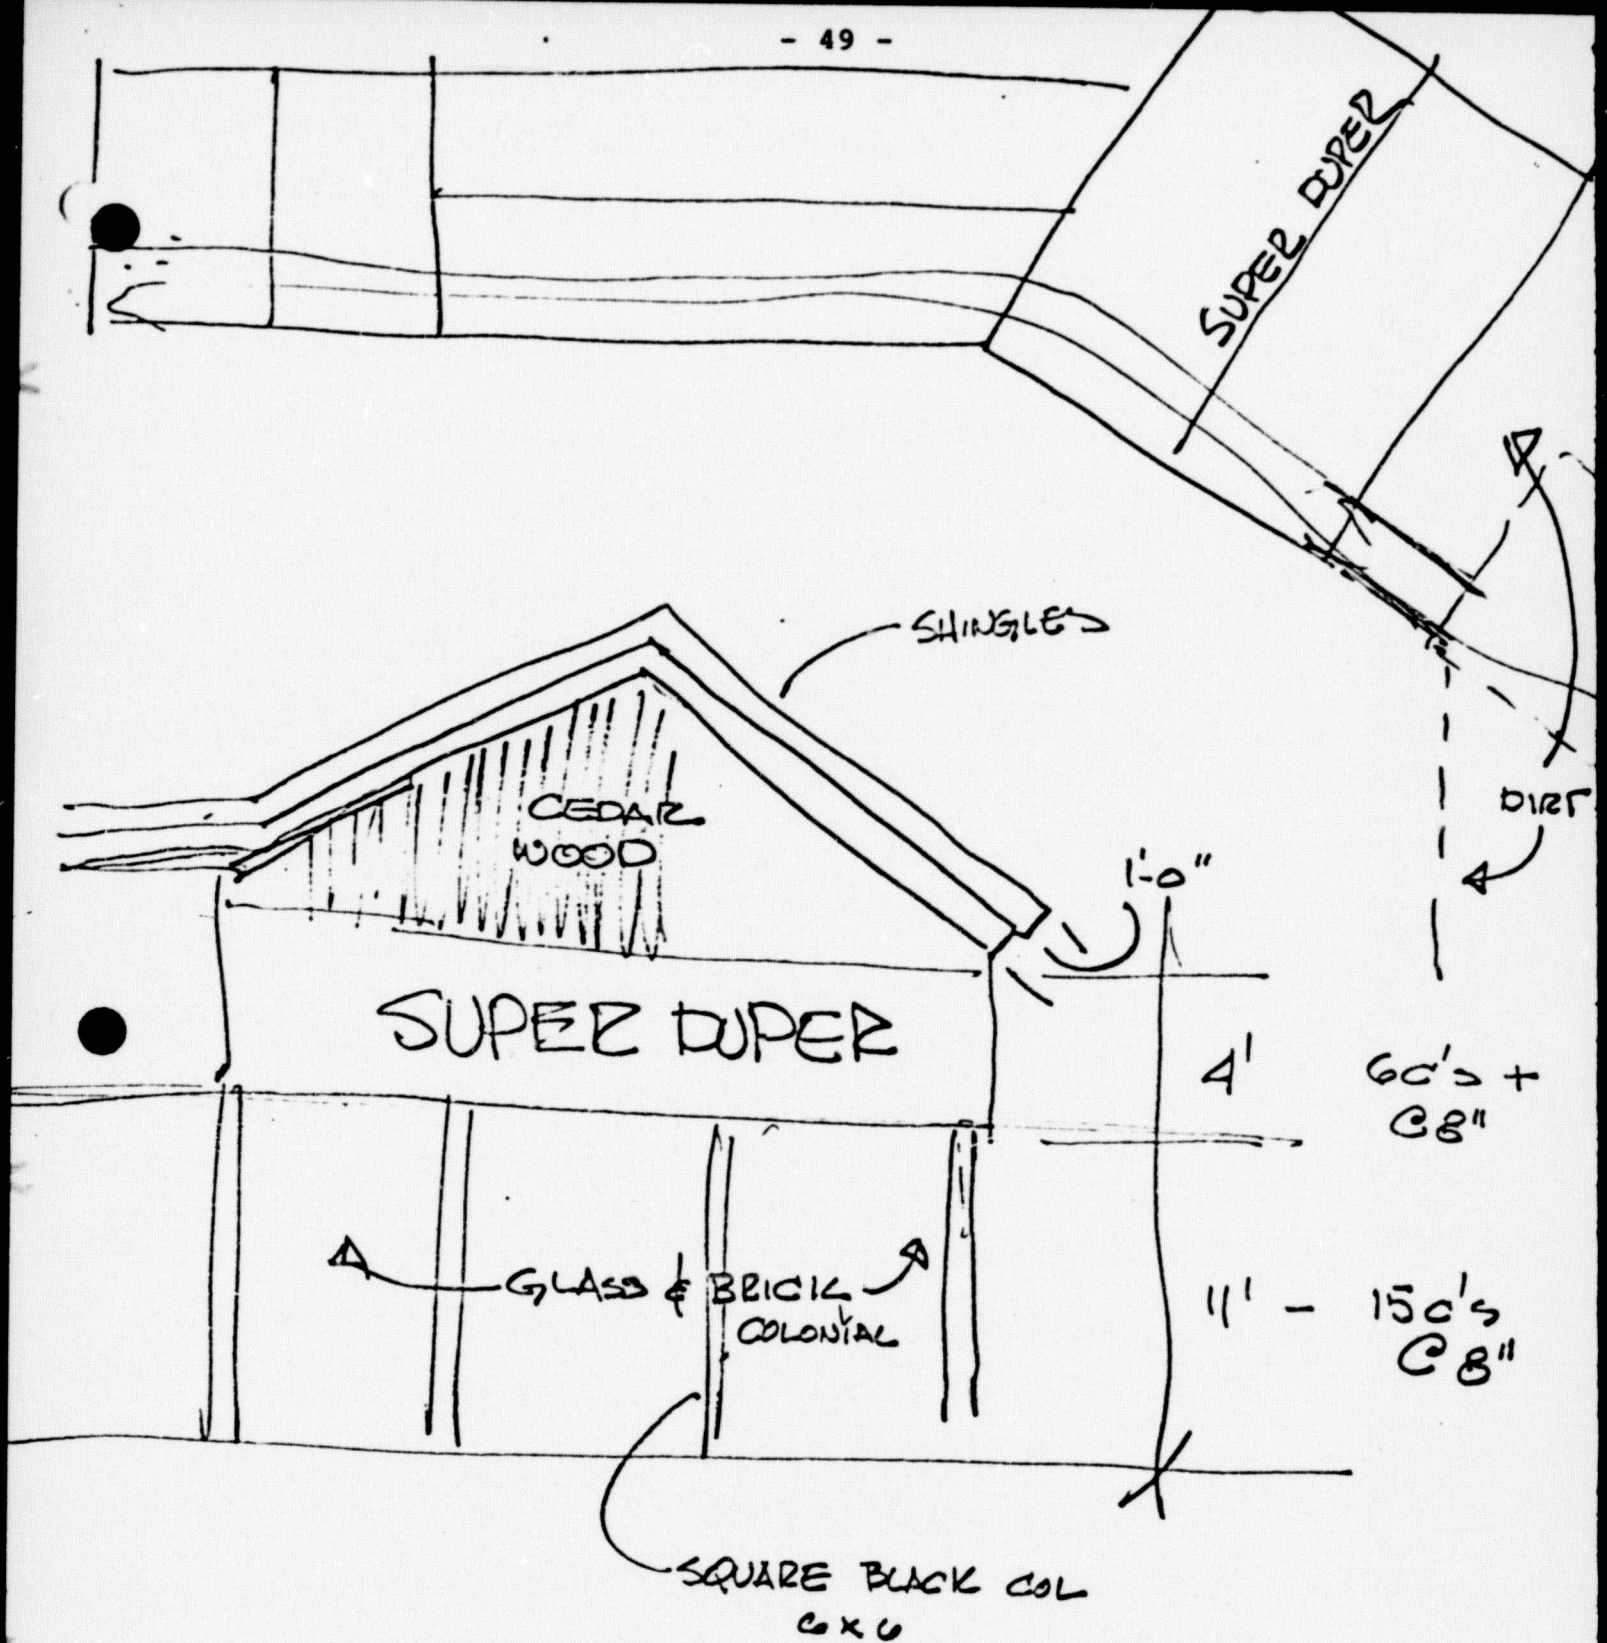 - 49 -
SUPER DUPER
SHINGLES
CEDAR
WOOD
DIRT
1'-0"
SUPER DUPER
4'
6c's +
C 8"
GLASS & BRICK
COLONIAL
11' - 15c's
C 8"
SQUARE BLACK COL
6 x 6